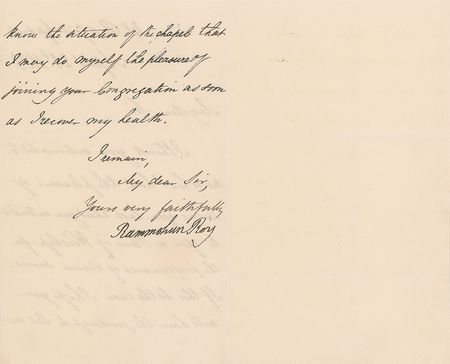 know the situation of the chapel that
I may do myself the pleasure of
joining your Congregation as soon
as I recover my health.
I remain,
My dear Sir,
Yours very faithfully
Rammohun Roy